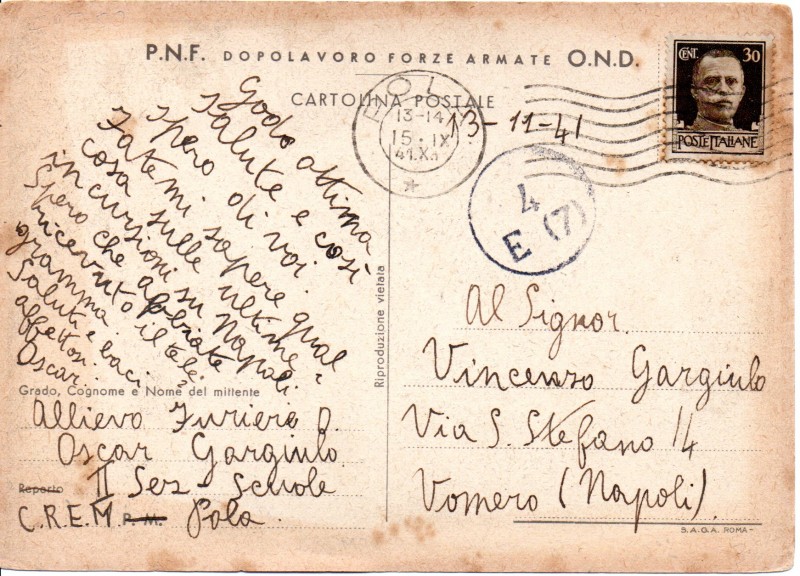 P.N.F. DOPOLAVORO FORZE ARMATE O.N.D.
CENT. 30
POSTE ITALIANE
CARTOLINA POSTALE
POL
13-14
15. IX
41.XI
13-11-41
4
E (7)
Godo ottima
salute e così
spero di voi.
Fatemi sapere qual
cosa sulle ultime
incursioni su Napoli.
Spero che abbiate
ricevuto il tele=
gramma
Saluti e baci
affettosi
Oscar.
Riproduzione vietata
Grado, Cognome e Nome del mittente
Allievo Furiere O.
Oscar Gargiulo
Reparto II Sez - Scuole
C.R.E.M. P. M. Pola.
Al Signor.
Vincenzo Gargiulo
Via S. Stefano 14
Vomero (Napoli).
S.A.G.A. ROMA-